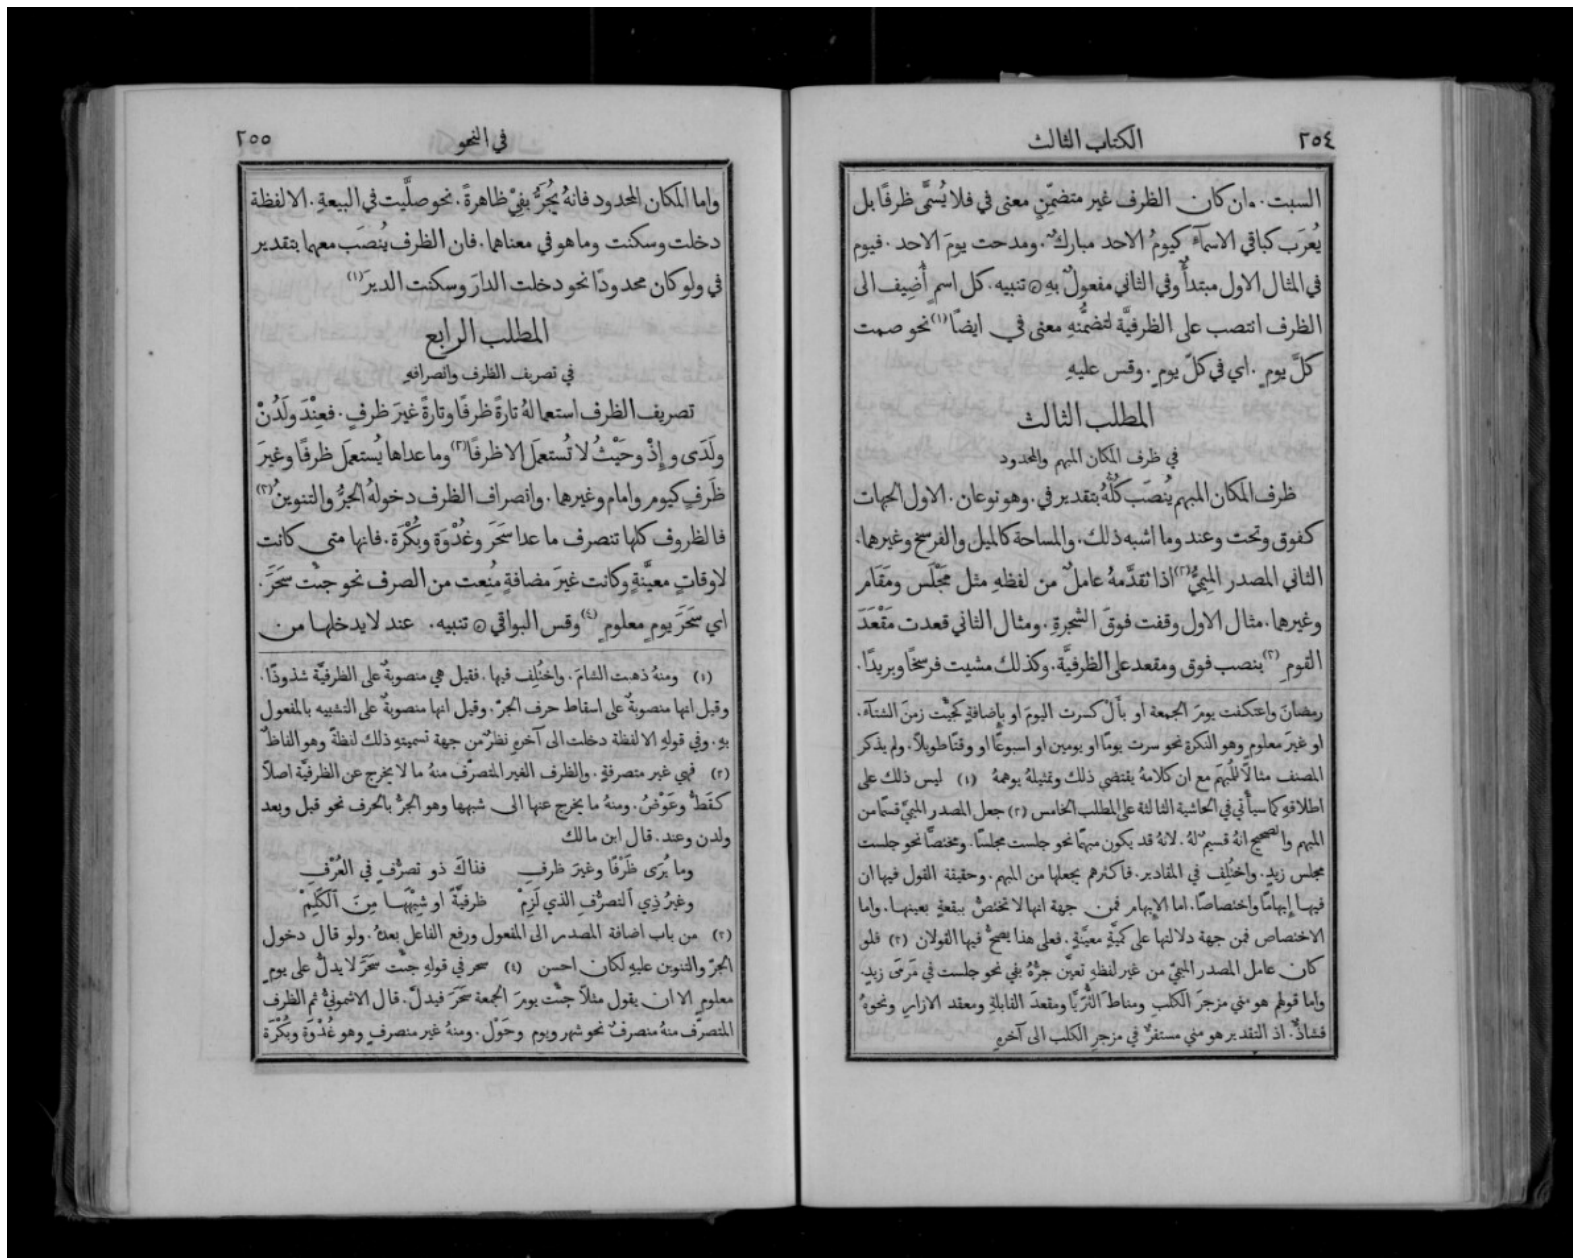 ٢٥٤
الكتاب الثالث
السبت. وان كان الظرف غير متضمّنٍ معنى في فلا يُسمَّى ظرفًا بل
يُعرَب كباقي الاسمآء كيومُ الاحد مباركٌ. ومدحت يومَ الاحد. فيوم
في المثال الاول مبتدأٌ وفي الثاني مفعولٌ بهِ ۞ تنبيه. كل اسمٍ أُضِيف الى
الظرف انتصب على الظرفيَّة لتضمُّنهِ معنى في ايضًا (١) نحو صمت
كلَّ يومٍ. اي في كلّ يومٍ. وقس عليهِ
المطلب الثالث
في ظرف المكان المبهم والمحدود
ظرف المكان المبهم يُنصَب كلُّهُ بتقدير في. وهو نوعان. الاول الجهات
كفوق وتحت وعند وما اشبه ذلك. والمساحة كالميل والفرسخ وغيرهما.
الثاني المصدر الميميُّ (٢) اذا تقدَّمهُ عاملٌ من لفظهِ مثل مَجْلَس ومَقَام
وغيرهما. مثال الاول وقفت فوقَ الشجرةِ. ومثال الثاني قعدت مَقْعَدَ
القومِ (٣) بنصب فوق ومقعد على الظرفيَّة. وكذلك مشيت فرسخًا وبريدًا.
رمضانَ واعتكفت يومَ الجمعة او بأَلْ كسرت اليومَ او بإضافةٍ كجئت زمنَ الشتآء.
او غيرَ معلومٍ وهو النكرة نحو سرت يومًا او يومين او اسبوعًا او وقتًا طويلاً. ولم يذكر
المصنف مثالًا للمُبهَم مع ان كلامهُ يقتضي ذلك وتمثيلهُ يوهمهُ (١) ليس ذلك على
اطلاقهِ كما سيأتي في الحاشية الثالثة على المطلب الخامس (٢) جعل المصدر الميميّ قسمًا من
المبهم والصحيح انهُ قسيمٌ لهُ. لانهُ قد يكون مبهمًا نحو جلست مجلسًا. ومختصًّا نحو جلست
مجلس زيدٍ. واختُلِف في المقادير. فاكثرهم يجعلها من المبهم. وحقيقة القول فيها ان
فيها إبهامًا واختصاصًا. اما الإبهام فمن جهة انها لا تختصُّ ببقعةٍ بعينها. واما
الاختصاص فمن جهة دلالتها على كميَّةٍ معيَّنةٍ. فعلى هذا يصحُّ فيها القولان (٣) فلو
كان عامل المصدر الميميّ من غير لفظهِ تعيَّن جرُّهُ بفي نحو جلست في مَرمَى زيدٍ.
واما قولهم هو مني مزجرَ الكلبِ ومناطَ الثُّرَيَّا ومقعدَ القابلةِ ومعقد الازارِ ونحوهُ
فشاذٌّ. اذ التقدير هو مني مستقرٌّ في مزجرِ الكلب الى آخرهِ
في النحو
٢٥٥
واما المكان المحدود فانهُ يُجَرُّ بفِيْ ظاهرةً. نحو صلَّيت في البيعةِ. الا لفظة
دخلت وسكنت وما هو في معناهما. فان الظرف يُنصَب معهما بتقدير
في ولو كان محدودًا نحو دخلت الدارَ وسكنت الديرَ (١)
المطلب الرابع
في تصريف الظرف وانصرافهِ
تصريف الظرف استعمالهُ تارةً ظرفًا وتارةً غيرَ ظرفٍ. فعِنْدَ ولَدُنْ
ولَدَى وإِذْ وحَيْثُ لا تُستعمَل الا ظرفًا (٢) وما عداها يُستعمَل ظرفًا وغيرَ
ظَرفٍ كيوم وامام وغيرهما. وانصراف الظرف دخولهُ الجرُّ والتنوينُ (٣)
فالظروف كلها تنصرف ما عدا سَحَر وغُدْوَة وبُكْرَة. فانها متى كانت
لاوقاتٍ معيَّنةٍ وكانت غيرَ مضافةٍ مُنِعت من الصرف نحو جئت سَحَرَ.
اي سَحَرَ يومٍ معلومٍ (٤) وقس البواقي ۞ تنبيه. عند لا يدخلها من
(١) ومنهُ ذهبت الشامَ. واختُلِف فيها. فقيل هي منصوبةٌ على الظرفيَّة شذوذًا.
وقيل انها منصوبةٌ على اسقاط حرف الجرّ. وقيل انها منصوبةٌ على التشبيه بالمفعول
بهِ. وفي قولهِ الا لفظة دخلت الى آخرهِ نظرٌ من جهة تسميتهِ ذلك لفظةً وهو الفاظٌ
(٢) فهي غير متصرفةٍ. والظرف الغير المتصرّف منهُ ما لا يخرج عن الظرفيَّة اصلاً
كقَطُّ وعَوْضُ. ومنهُ ما يخرج عنها الى شبهها وهو الجرُّ بالحرف نحو قبل وبعد
ولدن وعند. قال ابن مالك
وما يُرَى ظَرْفًا وغيرَ ظرفِ فذاكَ ذو تصرُّفٍ في العُرْفِ
وغيرُ ذِي ٱلتصرُّفِ الذي لَزِمْ ظرفيَّةً او شِبْهَهَا مِنَ ٱلْكَلِمْ
(٣) من باب اضافة المصدر الى المفعول ورفع الفاعل بعدهُ. ولو قال دخول
الجرّ والتنوين عليهِ لكان احسن (٤) سحر في قولهِ جئت سَحَرَ لا يدلُّ على يومٍ
معلومٍ الا ان يقول مثلاً جئت يومَ الجمعة سَحَرَ فيدلّ. قال الاشمونيُّ ثم الظرف
المتصرّف منهُ منصرفٌ نحو شهر ويوم وحَوْل. ومنهُ غير منصرفٍ وهو غُدْوَة وبُكْرَة